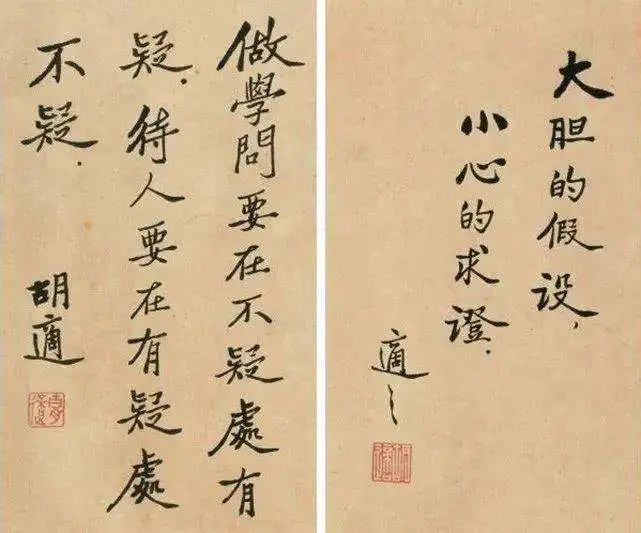 做學問要在不疑處有
疑.待人要在有疑處
不疑.
胡適
大胆的假设,
小心的求證.
適之